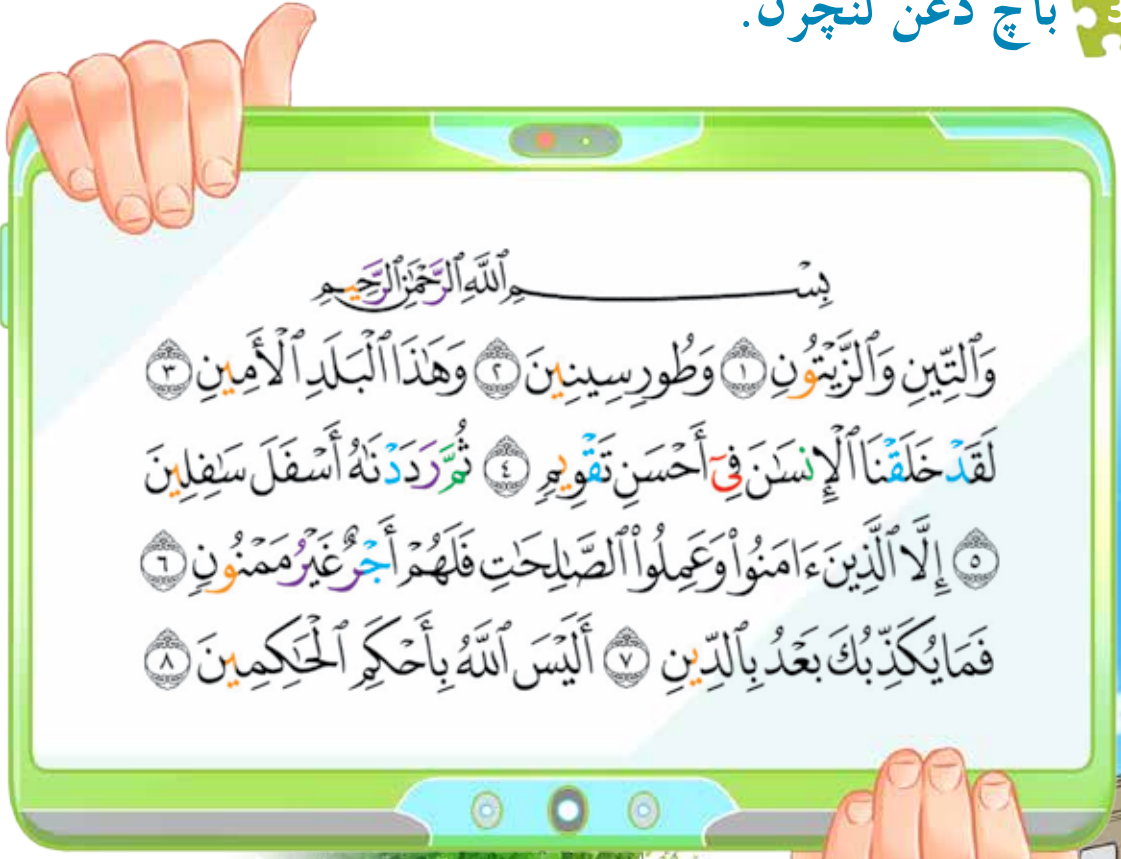 3 باچ دڠن لنچرن.
بِسْمِ ٱللَّهِ ٱلرَّحْمَٰنِ ٱلرَّحِيمِ
وَٱلتِّينِ وَٱلزَّيْتُونِ ١ وَطُورِ سِينِينَ ٢ وَهَٰذَا ٱلْبَلَدِ ٱلْأَمِينِ ٣
لَقَدْ خَلَقْنَا ٱلْإِنسَٰنَ فِىٓ أَحْسَنِ تَقْوِيمٍ ٤ ثُمَّ رَدَدْنَٰهُ أَسْفَلَ سَٰفِلِينَ
٥ إِلَّا ٱلَّذِينَ ءَامَنُوا۟ وَعَمِلُوا۟ ٱلصَّٰلِحَٰتِ فَلَهُمْ أَجْرٌ غَيْرُ مَمْنُونٍ ٦
فَمَا يُكَذِّبُكَ بَعْدُ بِٱلدِّينِ ٧ أَلَيْسَ ٱللَّهُ بِأَحْكَمِ ٱلْحَٰكِمِينَ ٨